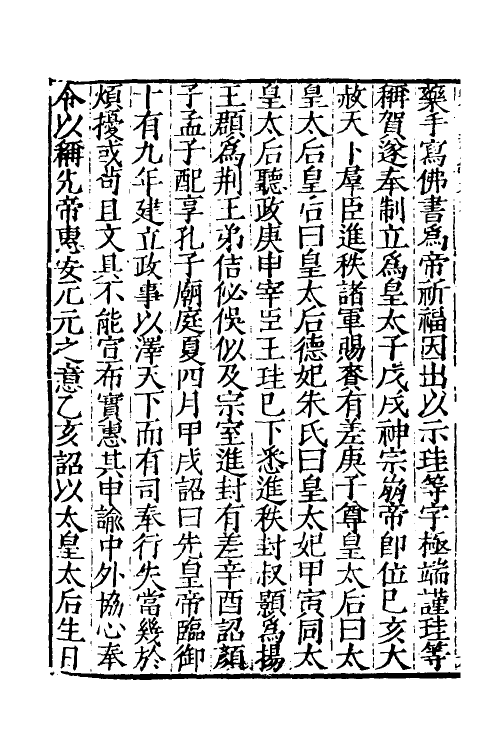 藥手寫佛書為帝祈福因出以示珪等字極端謹珪等
稱賀遂奉制立為皇太子戊戌神宗崩帝即位巳亥大
赦天下羣臣進秩諸軍賜賚有差庚子尊皇太后曰太
皇太后皇后曰皇太后德妃朱氏曰皇太妃甲寅同太
皇太后聽政庚申宰臣王珪已下悉進秩封叔顥為揚
王頵為荆王弟佶佖俁似及宗室進封有差辛酉詔顏
子孟子配享孔子廟庭夏四月甲戌詔曰先皇帝臨御
十有九年建立政事以澤天下而有司奉行失當幾於
煩擾或苟且文具不能宣布實惠其申諭中外協心奉
令以稱先帝惠安元元之意乙亥詔以太皇太后生日